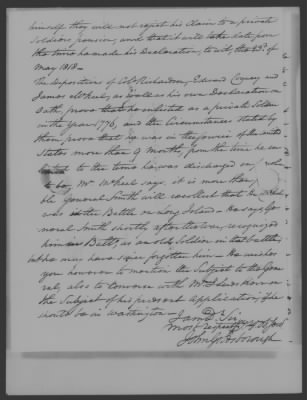 himself they will not reject his Claim to a private
soldiers pension, and that it will take date from
the time he made his Declaration, to wit, the 23d of
May 1818 —
The depositions of Col Richardson, Edward Coursey and
James McNeil, as well as his own Declaration on
Oath, prove that he enlisted as a private Soldier
in the year 1776, and the Circumstances stated by
them prove that he was in the service of the united
States more than 9 months, from the time he en
listed to the time he was discharged on
to boy, Mr McNeil says it is more than
ble General Smith will recollect that he
was in the Battle on Long Island — He says Ge
neral Smith shortly after the war, recognized
him in Balto, as an old Soldier in that battle
tho he may have since forgotten him — He wishes
you however to mention the subject to the Gene
ral, also to Converse with Mr on
the Subject of his present application, if he
should be in Washington —
I am Dr Sir
most respectfully
John G.